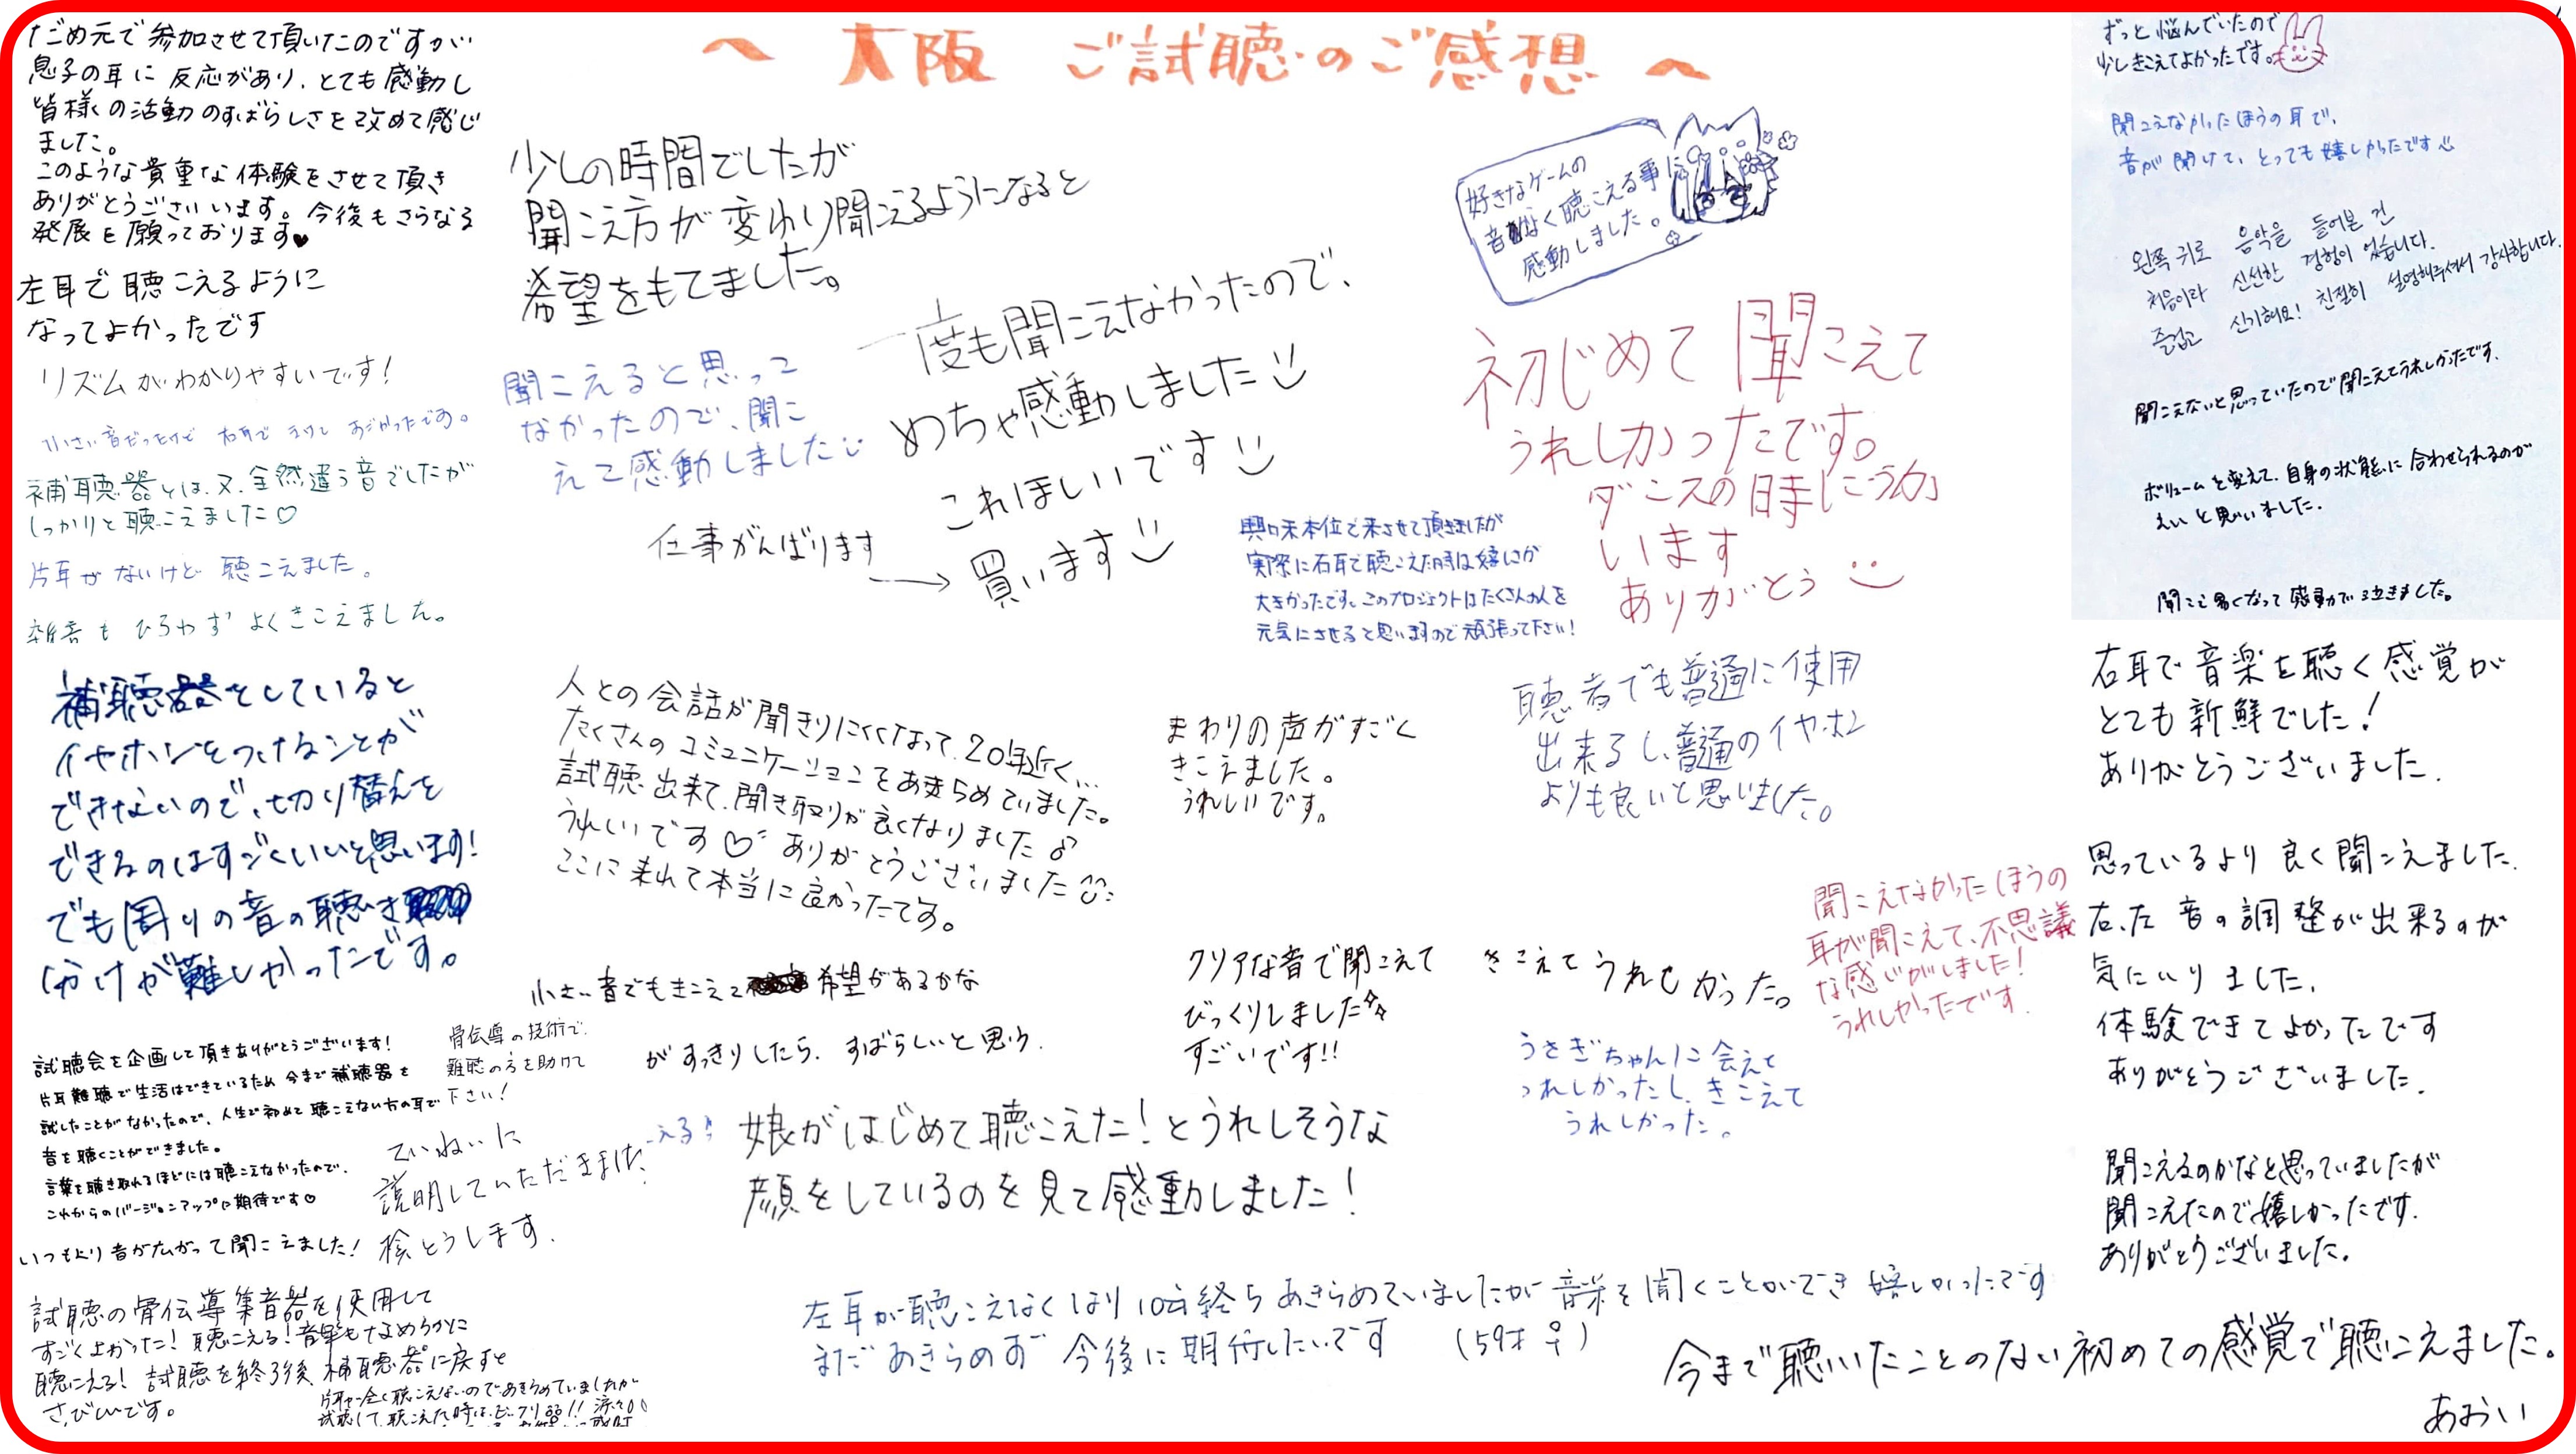 〜 大阪 ご試聴のご感想 〜
だめ元で参加させて頂いたのですが
息子の耳に反応があり、とても感動し
皆様の活動のすばらしさを改めて感じ
ました。
このような貴重な体験をさせて頂き
ありがとうございます。今後もさらなる
発展を願っております♥
左耳で聴こえるように
なってよかったです
リズムがわかりやすいです!
小さい音だったけど 右耳で
補聴器とは、又、全然違う音でしたが
しっかりと聴こえました♡
片耳がないけど聴こえました。
雑音もひろわずよくきこえました。
補聴器をしていると
イヤホンをつけることが
できないので、切り替えを
できるのはすごくいいと思います!
でも周りの音の聴き
分けが難しかったです。
試聴会を企画して頂きありがとうございます!
片耳難聴で生活はできているため今まで補聴器を
試したことがなかったので、人生で初めて聴こえない方の耳で
音を聴くことができました。
言葉を聴き取れるほどには聴こえなかったので、
これからのバージョンアップに期待です♡
骨伝導の技術で、
難聴の方を助けて
下さい!
ていねいに
説明していただきました
検とうします.
いつもより音が広がって聞こえました!
試聴の骨伝導集音器を使用して
すごくよかった! 聴こえる! 音楽もなめらかに
聴こえる! 試聴を終了後、補聴器に戻すと
さびしいです。
片耳が全く聴こえないのであきらめていましたが
試聴して、聴こえた時は、ビックリ
少しの時間でしたが
聞こえ方が変わり聞こえるようになると
希望をもてました。
聞こえると思って
なかったので、聞こ
えて感動しました
一度も聞こえなかったので、
めちゃ感動しました
これほしいです
仕事がんばります
→ 買います
好きなゲームの
音なく聴こえる事に
感動しました。
初じめて聞こえて
うれしかったです。
ダンスの時につか
います
ありがとう
興味本位で来させて頂きましたが
実際に右耳で聴こえた時は嬉しさが
大きかったです。このプロジェクトはたくさんの人を
元気にさせると思いますので頑張って下さい!
人との会話が聞きりにくくなって、20年近く...
たくさんのコミュニケーションをあきらめていました。
試聴出来て、聞き取りが良くなりました♪
うれしいです♡ ありがとうございました
ここに来れて本当に良かったです。
まわりの声がすごく
きこえました。
うれしいです。
聴者でも普通に使用
出来るし、普通のイヤホン
よりも良いと思いました。
小さい音でもきこえて 希望があるかな
がすっきりしたら、すばらしいと思う.
クリアな音で聞こえて
びっくりしました
すごいです!!
きこえてうれしかった。
聞こえなかったほうの
耳が聞こえて、不思議
な感じがしました!
うれしかったです.
うさぎちゃんに会えて
うれしかったし、きこえて
うれしかった。
える!!
娘がはじめて聴こえた!とうれしそうな
顔をしているのを見て感動しました!
左耳が聴こえなくなり10年経ちあきらめていましたが音楽を聞くことができ嬉しかったです
まだあきらめず今後に期待したいです (59才 ♀)
ずっと悩んでいたので
少しきこえてよかったです。
聞こえなかったほうの耳で、
音が聞けて、とっても嬉しかったです
왼쪽 귀로 음악을 들어본 건
처음이라 신선한 경험이 었습니다.
즐겁고 신기해요! 친절히 설명해주셔서 감사합니다.
聞こえないと思っていたので聞こえてうれしかったです.
ボリュームを変えて、自身の状態に合わせられるのが
えいと思いました.
聞こえ易くなって感動で泣きました。
右耳で音楽を聴く感覚が
とても新鮮でした!
ありがとうございました.
思っているより良く聞こえました.
右、左音の調整が出来るのが
気にいりました.
体験できてよかったです
ありがとうございました.
聞こえるのかなと思っていましたが
聞こえたので嬉しかったです.
ありがとうございました。
今まで聴いたことのない初めての感覚で聴こえました。
あおい